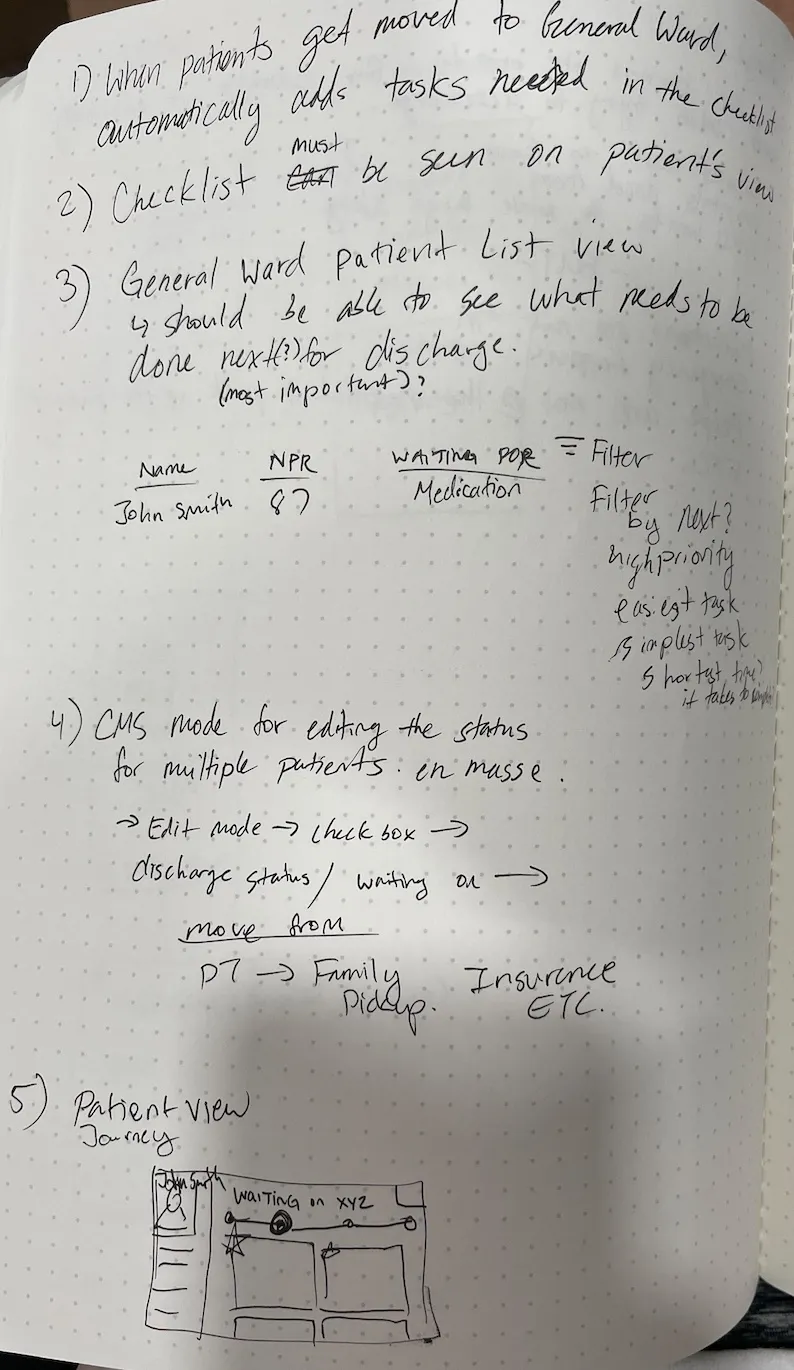 1) When patients get moved to General Ward,
automatically adds tasks needed in the checklist
must
2) Checklist be seen on patient's view
3) General Ward patient List view
↳ should be able to see what needs to be
done next(?) for discharge.
(most important)?
Name NPR WAITING FOR Filter
John Smith 87 Medication
Filter
by next?
high priority
easiest task
simplest task
shortest time?
it takes to
4) CMS mode for editing the status
for multiple patients. en masse.
→ Edit mode → check box →
discharge status / waiting on →
move from
PT → Family Insurence
Pickup. ETC.
5) Patient view
Journey
John Smith
WAITING on XYZ